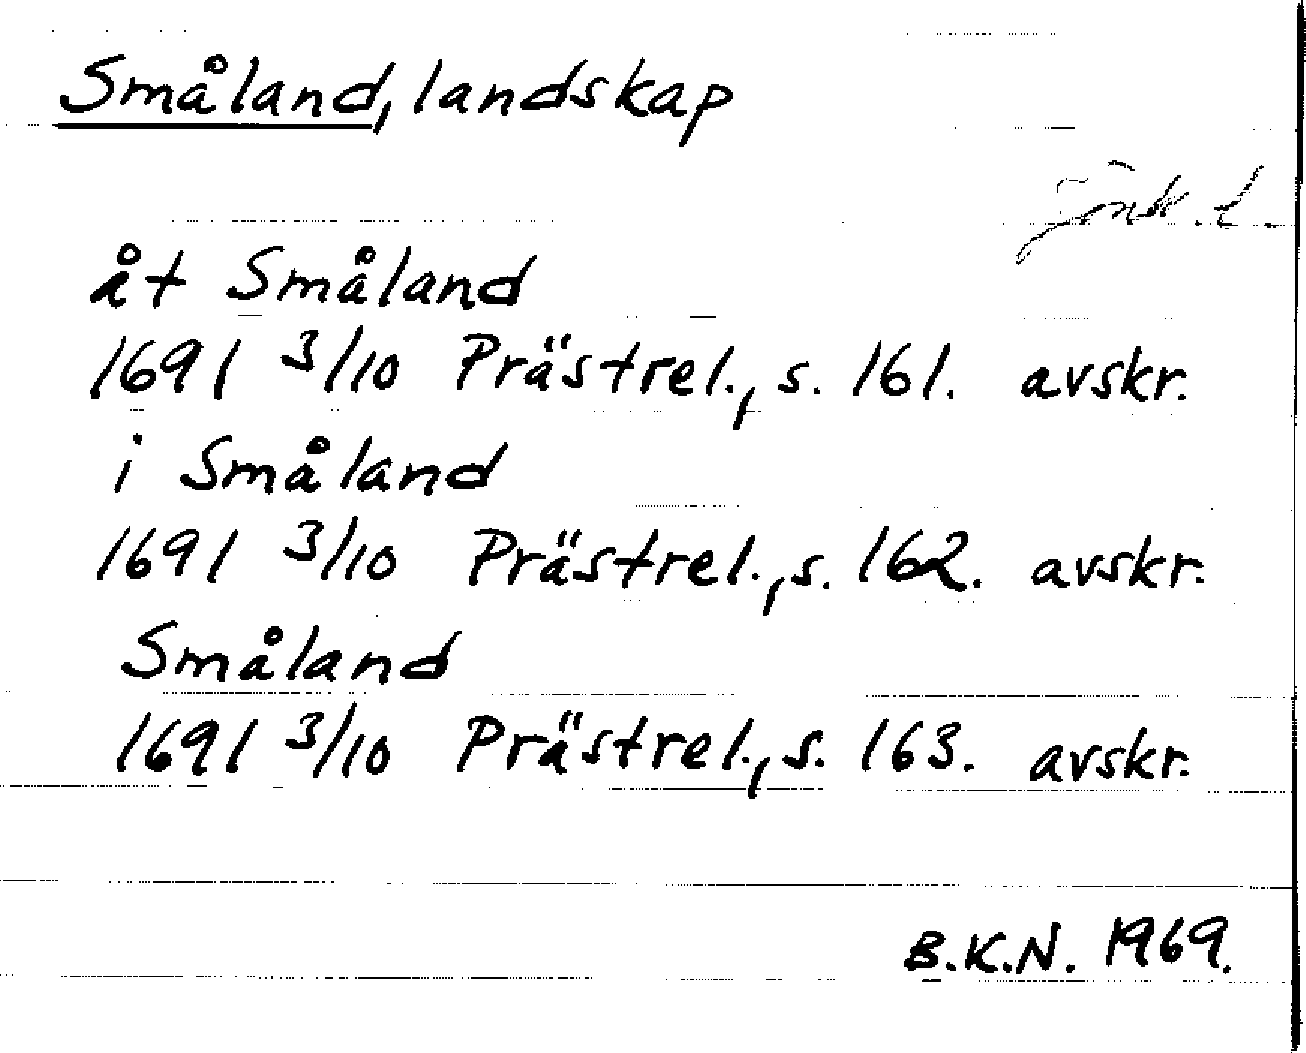 Småland, landskap
Jönk. l.
åt Småland
1691 3/10 Prästrel., s. 161. avskr.
i Småland
1691 3/10 Prästrel., s. 162. avskr.
Småland
1691 3/10 Prästrel., s. 163. avskr.
B.K.N. 1969.